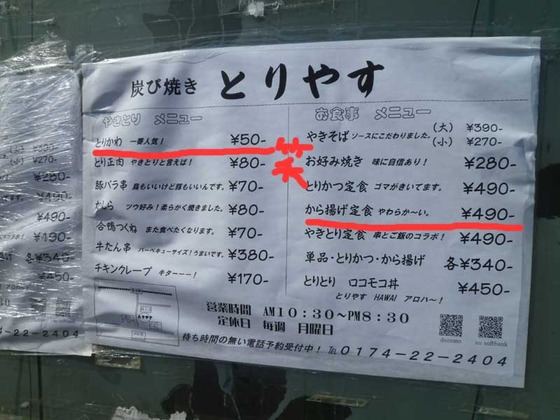 炭び焼き とりやす
やきとり メニュー
とりかわ 一番人気! ¥50-
とり正肉 やきとりと言えば! ¥80-
豚バラ串 鳥もいいけど豚もいいんです。 ¥70-
かしら ツウ好み!柔らかく焼きました。 ¥80-
合鴨つくね また食べたくなります。 ¥70-
牛たん串 バーベキューサイズ!うまいです。 ¥380-
チキンクレープ キターーー! ¥170-
笑
お食事 メニュー
やきそば ソースにこだわりました。 (大) ¥390-
(小) ¥270-
お好み焼き 味に自信あり! ¥280-
とりかつ定食 ゴマがきいてます。 ¥490-
から揚げ定食 やわらか〜い。 ¥490-
やきとり定食 串とご飯のコラボ! ¥490-
単品・とりかつ・から揚げ 各¥340-
とりとり ロコモコ丼 ¥450-
とりやす HAWAI アロハ〜!
営業時間 AM10:30~PM8:30
定休日 毎週 月曜日
待ち時間の無い電話予約受付中! ℡ 0174-22-2404
docomo
au softbank
¥390-
¥270-
¥280-
¥490-
¥490-
¥490-
各¥340-
¥450-
22-2404